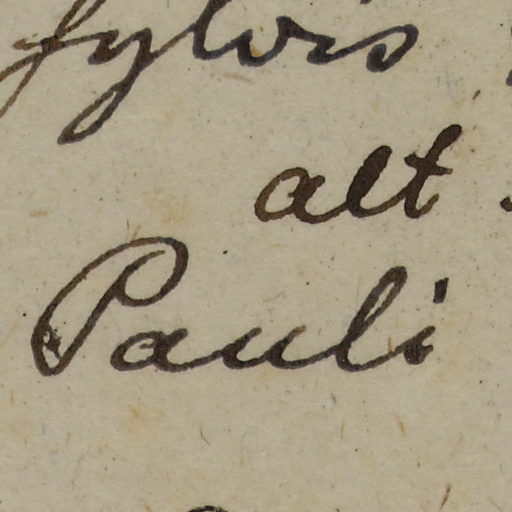 sylvis
alt
Pauli